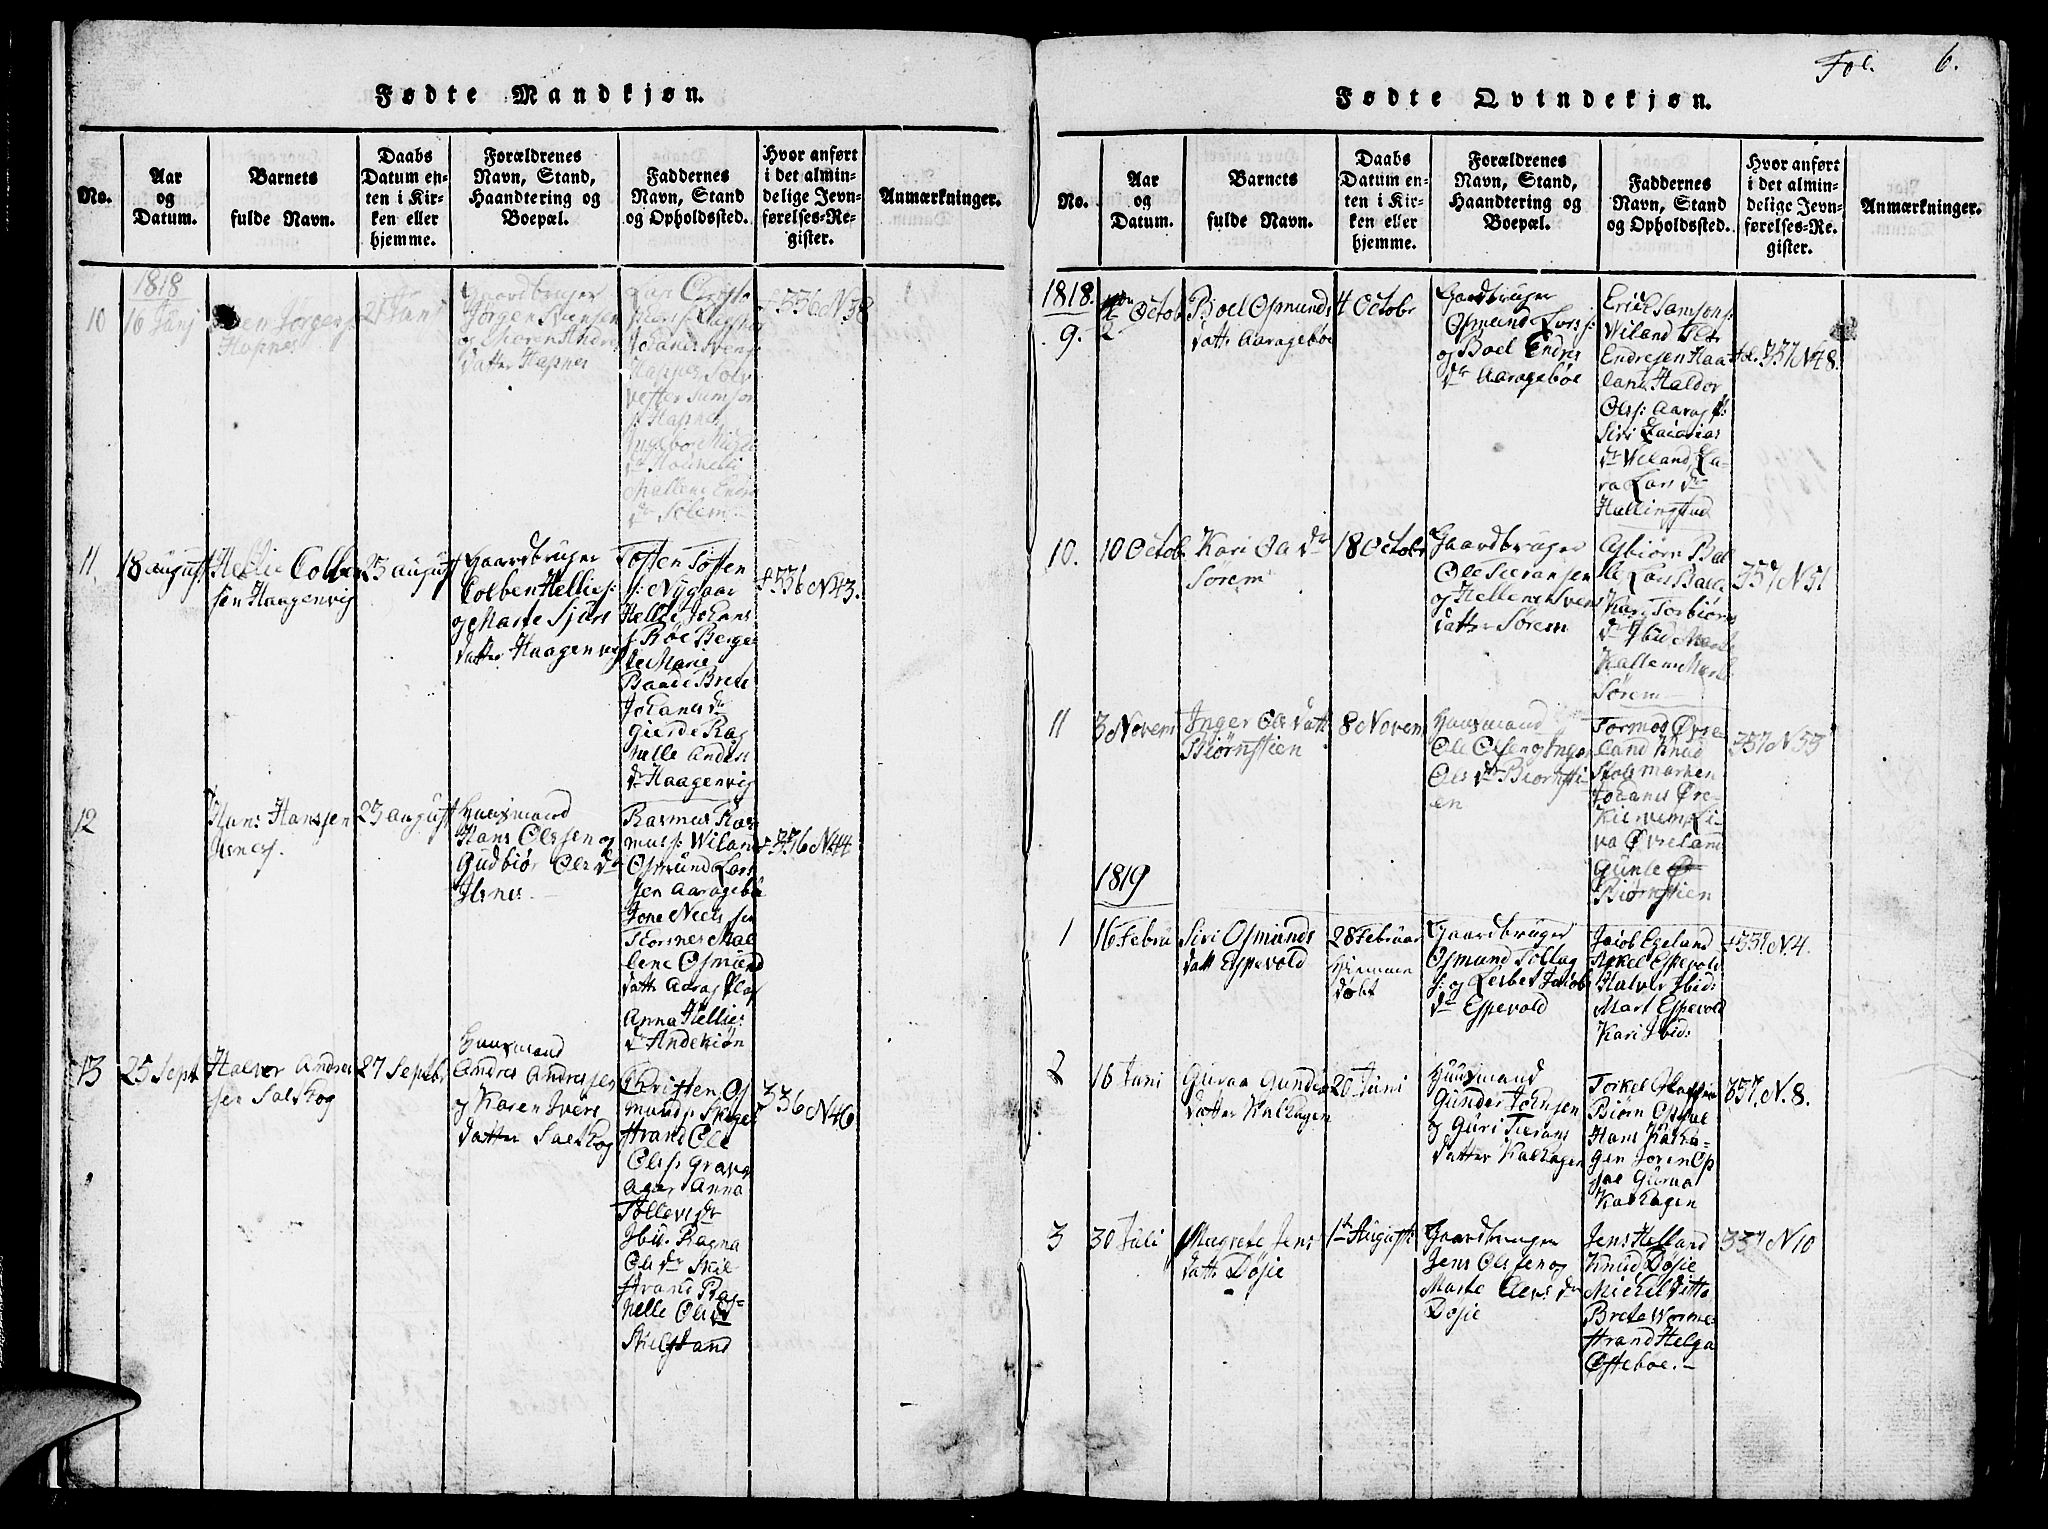 Fødte Mandkjøn.
No.
Aar
og
Datum.
Barnets
fulde Navn.
Daabs
Datum en-
ten i Kir-
ken eller
hjemme.
Forældrenes
Navn, Stand,
Haandtering og
Boepæl.
Faddernes
Navn, Stand
og Opholdssted.
Hvor anført
i det almin-
delige Jevn-
førelses-Re-
gister.
Anmærkninger.
1818
10
16 Junj
Jørgens
Hapnes
Gaardbruger
Jørgen
Andrs
datter Hapnes
336 N 38
11.
18 august
Hellie Colben
sen Haagenvig
23 august
Gaardbruger
Colben Hellies:
og Marte Sjurs
datter Haagenvig
Tosten Tosten
s: Nygaar
Hellie Johans
s: Røe Berge
te Marie
Baade Brete
Johanes dr
Gierde Rag
nelle Anders
dr Haagenvig
336 N 43.
12
Hans Hanssen
Isnes.
23 august
Huusmand
Hans Olssen og
Gudbiør Ols dr
Isnes.
Rasmus Ras
mus s: Wiland
Osmund Lars
sen Aaragebø
Tone Niels
Malene Osmund
datter
Anna Hellies
dr Andekiøn
336 N 44
13
25 Sept
Halvor Andres
sen Salskog
27 Septbr
Huusmand
Andres Andressen
og Karen Ivers
datter Salskog
Christen Os
munds:
strand Ole
Olss: Grava
ager Anna
Tollevs dr
Ibid. Ragna
Ols dr Skiel
strand Rag-
nelle Ols dr
Skielstrand
336 N 46
Fol. 6.
Fødte Qvindekjøn.
No.
Aar
og
Datum.
Barnets
fulde Navn.
Daabs
Datum en-
ten i Kir-
ken eller
hjemme.
Forældrenes
Navn, Stand,
Haandtering og
Boepæl.
Faddernes
Navn, Stand
og Opholdssted.
Hvor anført
i det almin-
delige Jevn-
førelses-Re-
gister.
Anmærkninger.
1818.
9.
2
Octob
Boel Osmunds
datt: Aaragebøe
4 Octobr
Gaardbruger
Osmund Lars s:
og Boel Endres
dr Aaragebøe
Erich Samsons:
Wiland
Endresen Haa
land Haldor
Olss: Aarag
Siri
dr Wiland, La-
ra Lars dr
Hellingstad
337 N 48.
10.
10 Octob
Kari Ola dr
Sørem
18 Octobr
Gaardbruger
Ole
og Hellene Svens
datter Sørem
Asbiørn Bal
le Lars Balle
Kari Torbiørns
dr Ibid Marte
Kallem Marte
Sørem
337 N 51
11
3 Novem
Inger Ols datt:
Biørnstien
8 Novem
Huusmand
Ole Olsen og Inger
Ols dr Biørnsti-
en
Tormod Øvre
land Knud
Stolsmarken
Johanes Øre-
Li-
va Øvreland
Gunle
Biørnstien
337 N 53
1819
1
16 Febru
Siri Osmunds
datt Espevold
28 Februar
Hiemme
døbt
Gaardbruger
Osmund Tollag
s: og Lisbet Jakobs
dr Espevold
Jacob Egeland
Espevold
Halvor Ibid:
Mart Espevold
Kari Ibid:
337. N. 4.
2
16 Juni
Guraa Gunders
datter Kalhagen
20 Juni
Huusmand
Gunder Johnsen
og Guri
datter Kalhagen
Torkel
Biørn Opsal
Hans Kalha-
gen Joren Op
sal Guraa
Kalhagen
337. N. 8.
3
30 Juli
Magrete Jens
datt: Døsie
1ste August
Gaardbruger
Jens Olssen og
Marte Clevs dr
Døsie
Jens Helland
Knud Døsie
Michel Ditto
Brete Worme-
strand Helga
Østeboe.
337 N 10